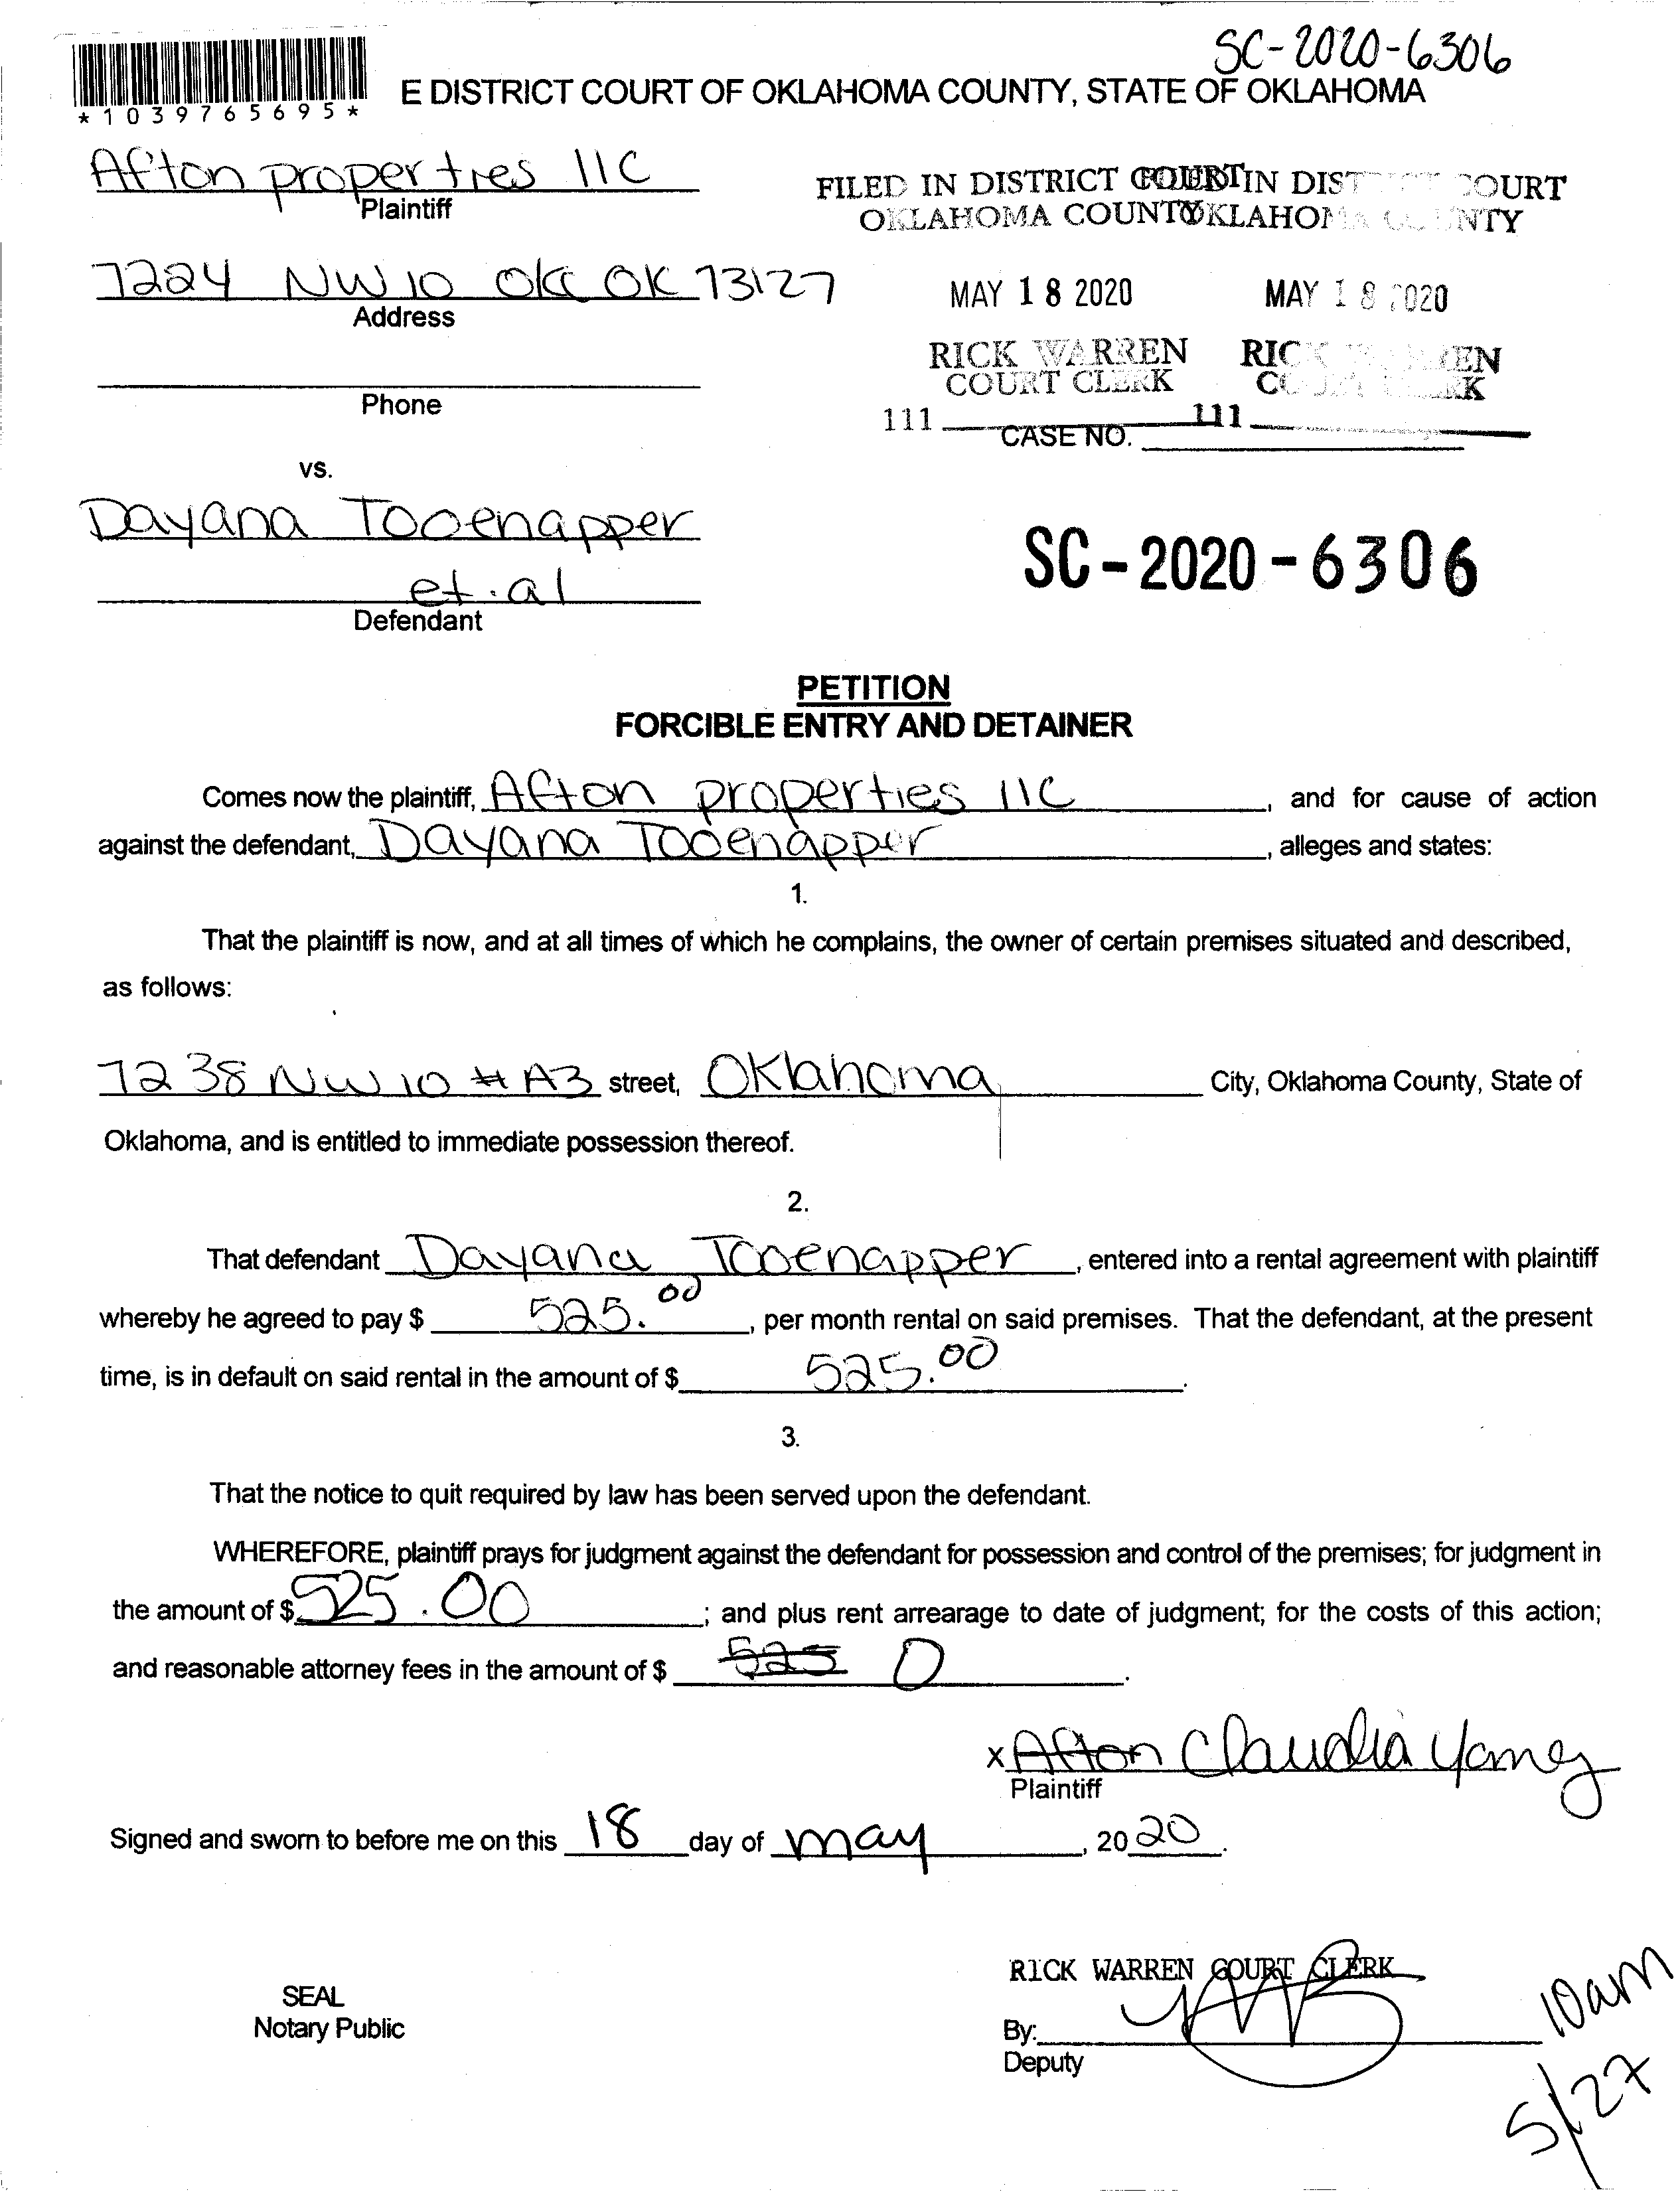 SC-2020-6306
E DISTRICT COURT OF OKLAHOMA COUNTY, STATE OF OKLAHOMA
*1039765695*
Afton properties llc
Plaintiff
FILED IN DISTRICT COURT IN DISTRICT COURT
OKLAHOMA COUNTY OKLAHOMA COUNTY
7224 NW 10 OKC OK 73127
Address
MAY 18 2020 MAY 18 2020
RICK WARREN RICK WARREN
COURT CLERK COURT CLERK
Phone
111 111
CASE NO.
vs.
Dayana Tooenapper
et.al
Defendant
SC-2020-6306
PETITION
FORCIBLE ENTRY AND DETAINER
Comes now the plaintiff, Afton properties llc, and for cause of action
against the defendant, Dayana Tooenapper, alleges and states:
1.
That the plaintiff is now, and at all times of which he complains, the owner of certain premises situated and described,
as follows:
7238 NW 10 # A3 street, Oklahoma City, Oklahoma County, State of
Oklahoma, and is entitled to immediate possession thereof.
2.
That defendant Dayana Tooenapper, entered into a rental agreement with plaintiff
whereby he agreed to pay $ 525.00, per month rental on said premises. That the defendant, at the present
time, is in default on said rental in the amount of $ 525.00.
3.
That the notice to quit required by law has been served upon the defendant.
WHEREFORE, plaintiff prays for judgment against the defendant for possession and control of the premises; for judgment in
the amount of $ 525.00; and plus rent arrearage to date of judgment; for the costs of this action;
and reasonable attorney fees in the amount of $ 525 0.
x Afton Claudia Yanez
Plaintiff
Signed and sworn to before me on this 18 day of may, 2020.
RICK WARREN COURT CLERK
SEAL
Notary Public
By:
Deputy
10am
5/27